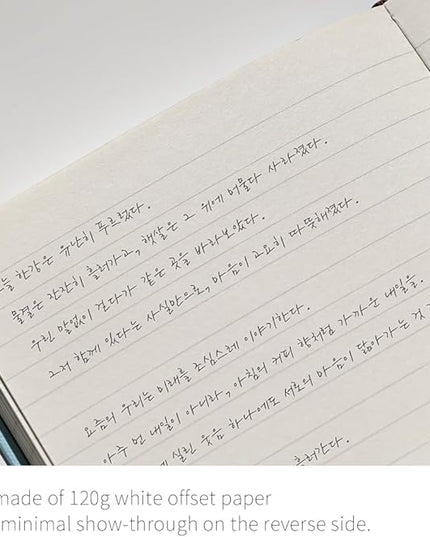 오늘 한강은 유난히 푸르렀다.
물결은 잔잔히 흘러가고, 햇살은 그 위에 머물다 사라졌다.
우린 말없이 걷다가 같은 곳을 바라보았다.
그저 함께 있다는 사실만으로, 마음이 고요히 따뜻해졌다.
요즘의 우리는 미래를 조심스레 이야기한다.
아주 먼 내일이 아니라, 아침의 커피 향처럼 가까운 내일을.
실린 웃음 하나에도 서로의 마음이 닮아가는 것
흘러간다.
made of 120g white offset paper
minimal show-through on the reverse side.